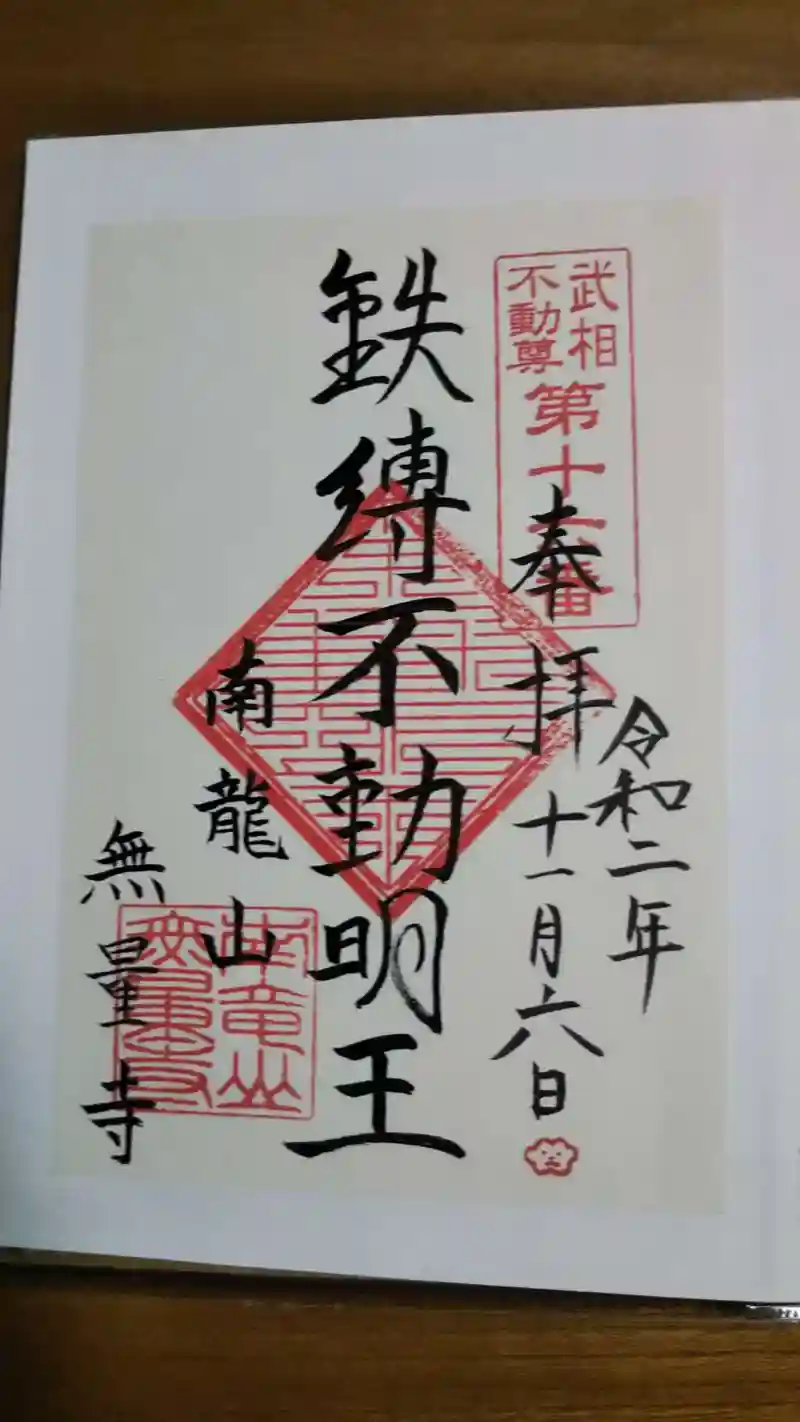 武相
不動尊
第十 番
令和二年
奉拝
十一月六日
鉄縛不動明王
南龍山
無量寺
南竜山
無量寺